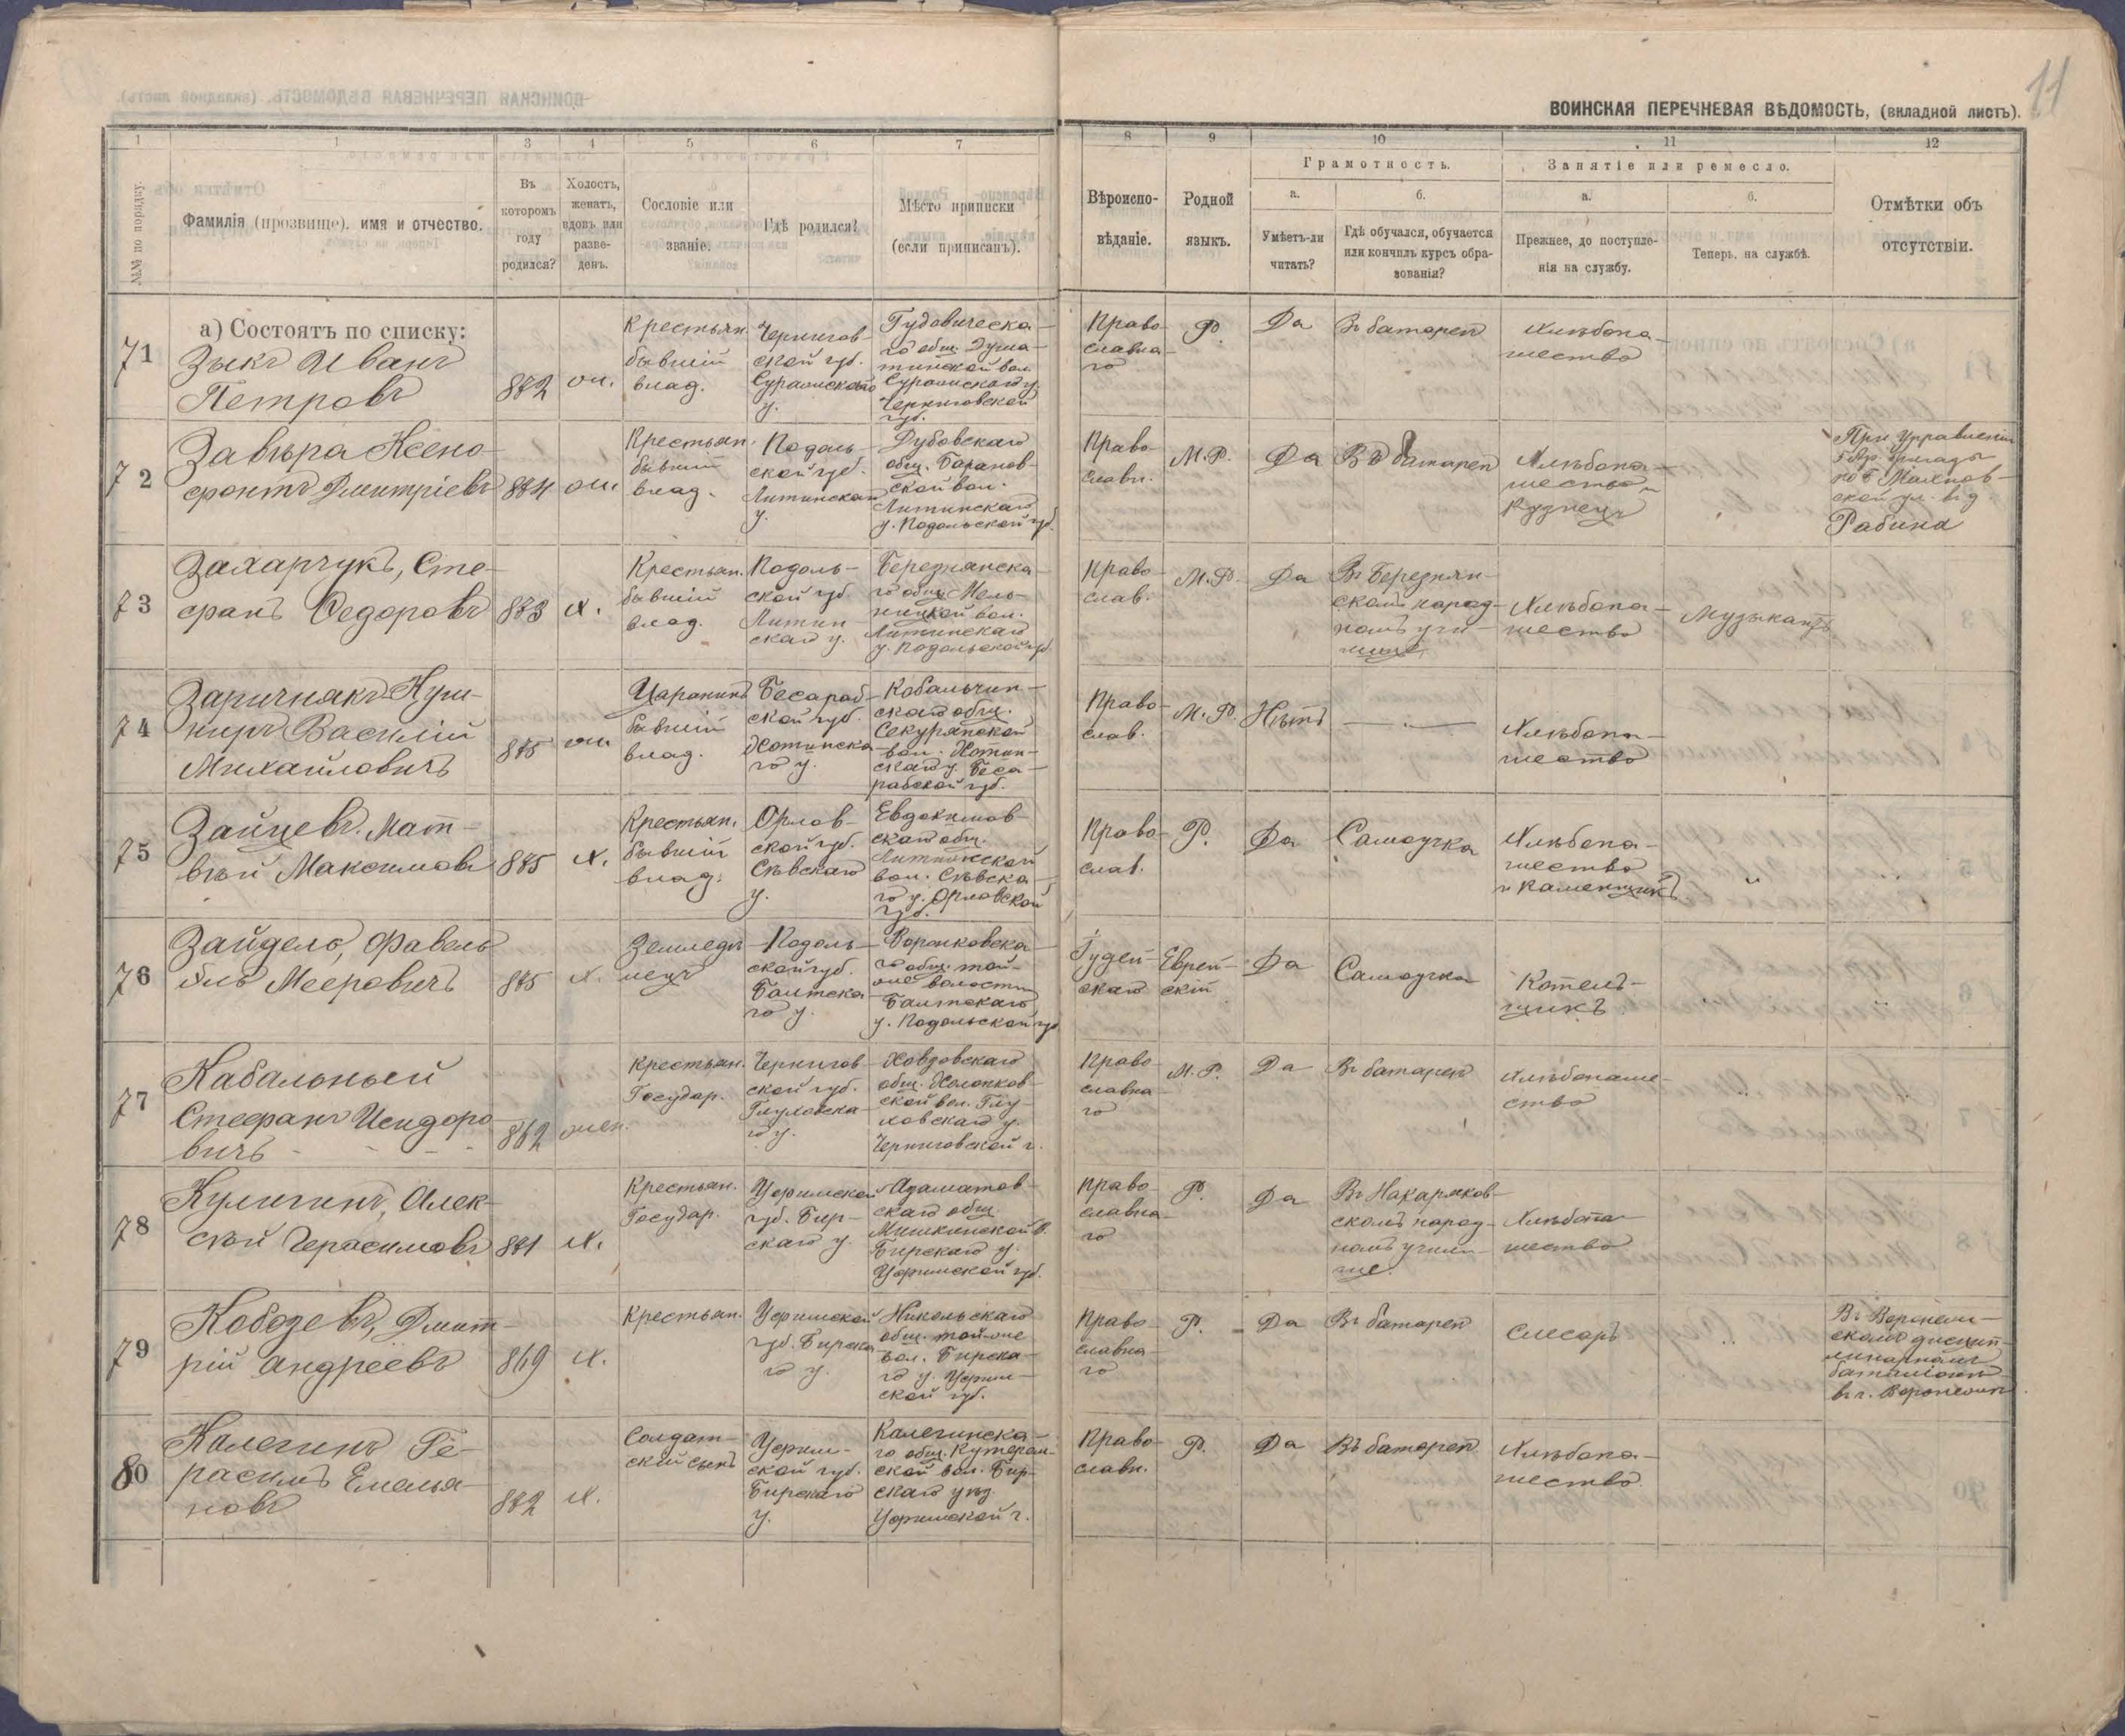 11
ВОИНСКАЯ ПЕРЕЧНЕВАЯ ВѢДОМОСТЬ, (вкладной листъ).
1 1 3 4 5 6 7 8 9 10 11 12
№№ по порядку.
Фамилія (прозвище), имя и отчество.
Въ
которомъ
году
родился?
Холость,
женатъ,
вдовъ или
разве-
денъ.
Сословіе или
званіе.
Гдѣ родился?
Мѣсто приписки
(если приписанъ).
Вѣроиспо-
вѣданіе.
Родной
языкъ.
Грамотность.
а.
Умѣетъ-ли
читать?
б.
Гдѣ обучался, обучается
или кончилъ курсъ обра-
зованія?
Занятіе или ремесло.
а.
Прежнее, до поступле-
нія на службу.
б.
Теперь, на службѣ.
Отмѣтки объ
отсутствіи.
а) Состоятъ по списку:
71
Зыкъ Иванъ
Петровъ
872
Крестьян.
бывшій
влад.
Чернигов-
ской губ.
Суражскаго
у.
го общ.
Суражскаго у.
Черниговской
губ.
Право-
славна-
го
Р.
Да
Въ батареѣ
Хлѣбопа-
шество
72
Завѣра Ксено-
фонтъ Дмитріевъ
874
Крестьян.
бывшій
влад.
Подоль-
ской губ.
Литинскаго
у.
Дубовскаго
общ. Баранов-
ской вол.
Литинскаго
у. Подольской губ.
Право-
славн.
М.Р.
Да
Въ батареѣ
Хлѣбопа-
шество и
Кузнецъ
При Управленіи
5 Арт. бригады
по Б. Махнов-
ской ул. въ д.
Рабина
73
Захарчукъ, Сте-
фанъ Федоровъ
873
х.
Крестьян.
бывшій
влад.
Подоль-
ской губ.
Литин-
скаго у.
Березнянска-
го общ. Мель-
ницкой вол.
Литинскаго
у. Подольской губ.
Право-
слав.
М.Р.
Да
Въ Березнян-
скомъ народ-
номъ учи-
лищѣ
Хлѣбопа-
шество
Музыкантъ
74
Заричнякъ-Куш-
ниръ Василій
Михайловичъ
875
Царанинъ
бывшій
влад.
Бесараб-
ской губ.
Хотинска-
го у.
Кобальчин-
скаго общ.
Секурянской
вол. Хотин-
скаго у. Беса-
рабской губ.
Право-
слав.
М.Р.
Нѣтъ
Хлѣбопа-
шество
75
Зайцевъ, Мат-
вѣй Максимовъ
875
х.
Крестьян.
бывшій
влад.
Орлов-
ской губ.
Сѣвскаго
у.
Евдокимов-
скаго общ.
вол. Сѣвска-
го у. Орловской
губ.
Право-
слав.
Р.
Да
Самоучка
Хлѣбопа-
шество
и каменщикъ
76
Зайдель, Фавель
Иль Мееровичъ
875
х.
Земледѣ-
лецъ
Подоль-
ской губ.
Балтска-
го у.
Воронковска-
го общ. той-
же волости
Балтскаго
у. Подольской губ.
Іудей-
скаго
Еврей-
скій
Да
Самоучка
Котель-
щикъ
77
Кабальный
Стефанъ Исидоро-
вичъ
862
жен.
Крестьян.
Государ.
Чернигов-
ской губ.
Глуховска-
го у.
общ.
ской вол. Глу-
ховскаго у.
Черниговской г.
Право-
славна-
го
М.Р.
Да
Въ батареѣ
Хлѣбопаше-
ство
78
Кулигинъ, Алек-
сѣй Герасимовъ
871
х.
Крестьян.
Государ.
Уфимской
губ. Бир-
скаго у.
скаго общ.
Мишкинской в.
Бирскаго у.
Уфимской губ.
Право-
славна-
го
Р.
Да
скомъ народ-
номъ учили-
ще.
Хлѣбопа-
шество
79
Кобозевъ, Дмит-
рій Андреевъ
869
х.
Крестьян.
Уфимской
губ. Бирска-
го у.
Никольскаго
общ. той-же
вол. Бирска-
го у. Уфим-
ской губ.
Право-
славна-
го
Р.
Да
Въ батареѣ
Слесарь
Въ Воронеж-
скомъ дисцип-
линарномъ
баталіонѣ
въ г. Воронежѣ.
80
Калегинъ Ге-
расимъ Емелья-
новъ
872
х.
Солдат-
скій сынъ
Уфим-
ской губ.
Бирскаго
у.
Калегинска-
го общ.
ской вол. Бир-
скаго уѣзд.
Уфимской г.
Право-
славн.
Р.
Да
Въ батареѣ
Хлѣбопа-
шество.